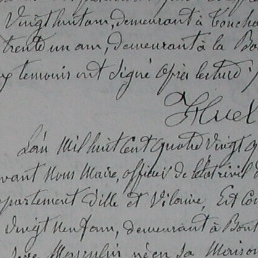 Vingt huit ans, demeurant à Couche
trente un ans, demeurant à la Bo
temoins ont signé après lecture
Huet
L'an Mil huit Cent quatre Vingt q
vant Nous Maire, officier de l'état civil d
partement d'Ille et Vilaine, Est Co
Vingt Neuf ans, demeurant à Bont
Sexe Masculin né en sa Maison